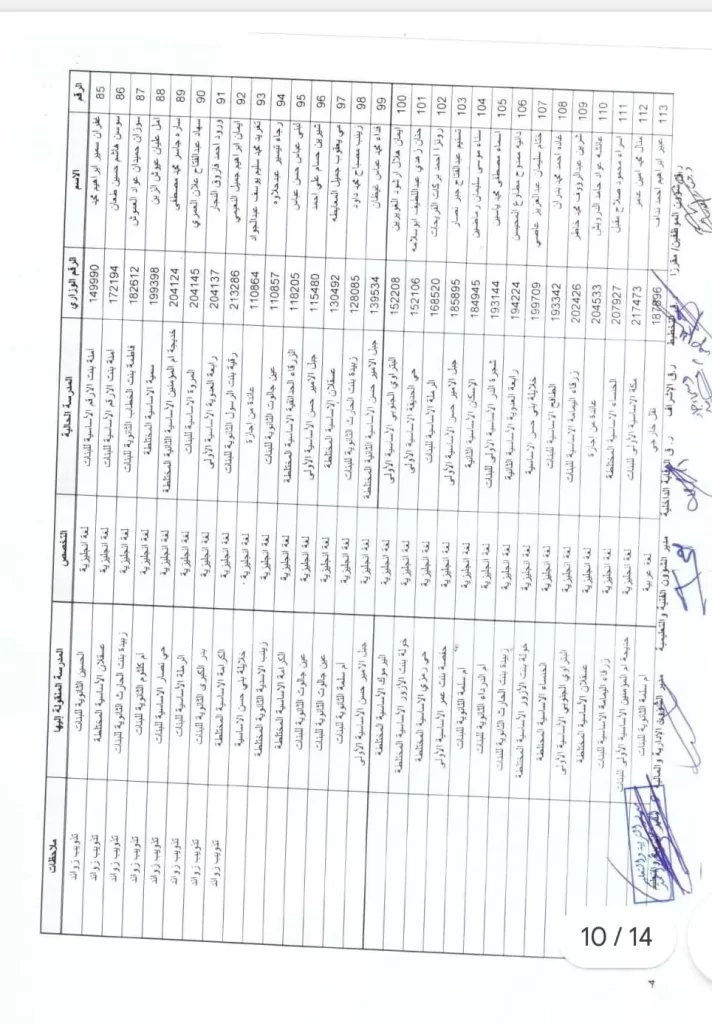 الرقم الاسم الرقم الوزاري المدرسة الحالية التخصص المدرسة المنقولة إليها ملاحظات
85 غفران سمير ابراهيم محمد 149990 آمنة بنت الارقم الاساسية للبنات لغة انجليزية الحسين الثانوية للبنات تذويب زوائد
86 سوسن هاشم حسين طعان 172194 آمنة بنت الارقم الاساسية للبنات لغة انجليزية عسقلان الاساسية المختلطة تذويب زوائد
87 سوزان حميدان عواد العموش 182612 فاطمة بنت الخطاب الثانوية للبنات لغة انجليزية زبيدة بنت الحارث الثانوية للبنات تذويب زوائد
88 امل عليان عيوش الزين 199398 سمية الاساسية المختلطة لغة انجليزية ام كلثوم الثانوية للبنات تذويب زوائد
89 ساره جاسر محمد مصطفى 204124 خديجة ام المؤمنين الاساسية الثانية المختلطة لغة انجليزية حي نصار الاساسية للبنات تذويب زوائد
90 سهاد عبدالفتاح علان العمري 204145 المروة الاساسية للبنات لغة انجليزية الرملة الاساسية للبنات تذويب زوائد
91 ورود احمد فاروق النجار 204137 رابعة العدوية الاساسية الأولى لغة انجليزية بدر الكبرى الثانوية للبنات تذويب زوائد
92 ايمان ابراهيم جميل النعيمي 213286 رقية بنت الرسول الثانوية للبنات لغة انجليزية الكرامة الاساسية المختلطة تذويب زوائد
93 تغريد محمد سليم يوسف عبدالجواد 110864 عائدة من اجازة لغة انجليزية خلايلة بني حسن الاساسية
94 رجاء تيسير عبد حلاوه 110857 عين جالوت الثانوية للبنات لغة انجليزية زينب الاسدية الثانوية المختلطة
95 لبنى عباس حسن عباس 118205 الزرقاء الحدائقية الاساسية المختلطة لغة انجليزية الكرامة الاساسية المختلطة
96 شيرين حسام علي احمد 115480 جبل الامير حسن الاساسية الأولى لغة انجليزية عين جالوت الثانوية للبنات
97 مي يعقوب جميل المعايطه 130492 عسقلان الاساسية المختلطة لغة انجليزية عين جالوت الثانوية للبنات
98 زينب مصباح محمد داود 128085 زبيدة بنت الحارث الثانوية للبنات لغة انجليزية ام سلمة الثانوية للبنات
99 فداء محمد عباس غيظان 139534 جبل الامير حسن الاساسية الثانية المختلطة لغة انجليزية جبل الامير حسن الاساسية الأولى
100 ايمان هلال ارشود الغويرين 152208 البتراوي الجنوبي الاساسية الأولى لغة انجليزية اليرموك الاساسية المختلطة
101 حنان زهدي عبداللطيف ابوسلامه 152106 حي الحديقة الاساسية الأولى لغة انجليزية خولة بنت الأزور الاساسية المختلطة
102 رونزا احمد بركات الفريحات 168520 الرملة الاساسية للبنات لغة انجليزية حي رمزي الاساسية المختلطة
103 تسنيم عبدالفتاح جبر نصار 185895 جبل الامير حسن الاساسية الأولى لغة انجليزية حفصة بنت عمر الاساسية الأولى
104 سناء موسى سليمان رماضين 184945 الإسكان الاساسية الثانية لغة انجليزية ام سلمة الثانوية للبنات
105 اسماء مصطفى محمد ياسين 193144 شجرة الدر الاساسية الأولى للبنات لغة انجليزية ام الدرداء الثانوية للبنات
106 دانيه ممدوح مطاوع المحيسن 194224 رابعة العدوية الاساسية الثانية لغة انجليزية زبيدة بنت الحارث الثانوية للبنات
107 ختام سليمان عبدالعزيز عاصي 199709 خلايلة بني حسن الاساسية لغة انجليزية خولة بنت الأزور الاساسية المختلطة
108 غاده احمد محمد بدران 193342 الطافح الاساسية للبنات لغة انجليزية الخنساء الاساسية المختلطة
109 شرين عبدالرؤوف محمد خاطر 202426 زرقاء اليمامة الاساسية للبنات لغة انجليزية البتراوي الجنوبي الاساسية الأولى
110 عائشه عواد حامد الدرويش 204533 عائدة من اجازة لغة انجليزية عسقلان الاساسية المختلطة
111 اسراء محمود صلاح مقبل 207927 الخنساء الاساسية المختلطة لغة انجليزية زرقاء اليمامة الاساسية للبنات
112 منال محمد امين عامر 217473 مكة الاساسية الأولى للبنات لغة انجليزية خديجة ام المؤمنين الاساسية الأولى للبنات
113 عبير ابراهيم احمد نداف 187896 نقل خارجي لغة عربية ام سلمة الثانوية للبنات
مدير الشؤون الفنية والتعليمية
مدير الشؤون الادارية والمالية
10 / 14